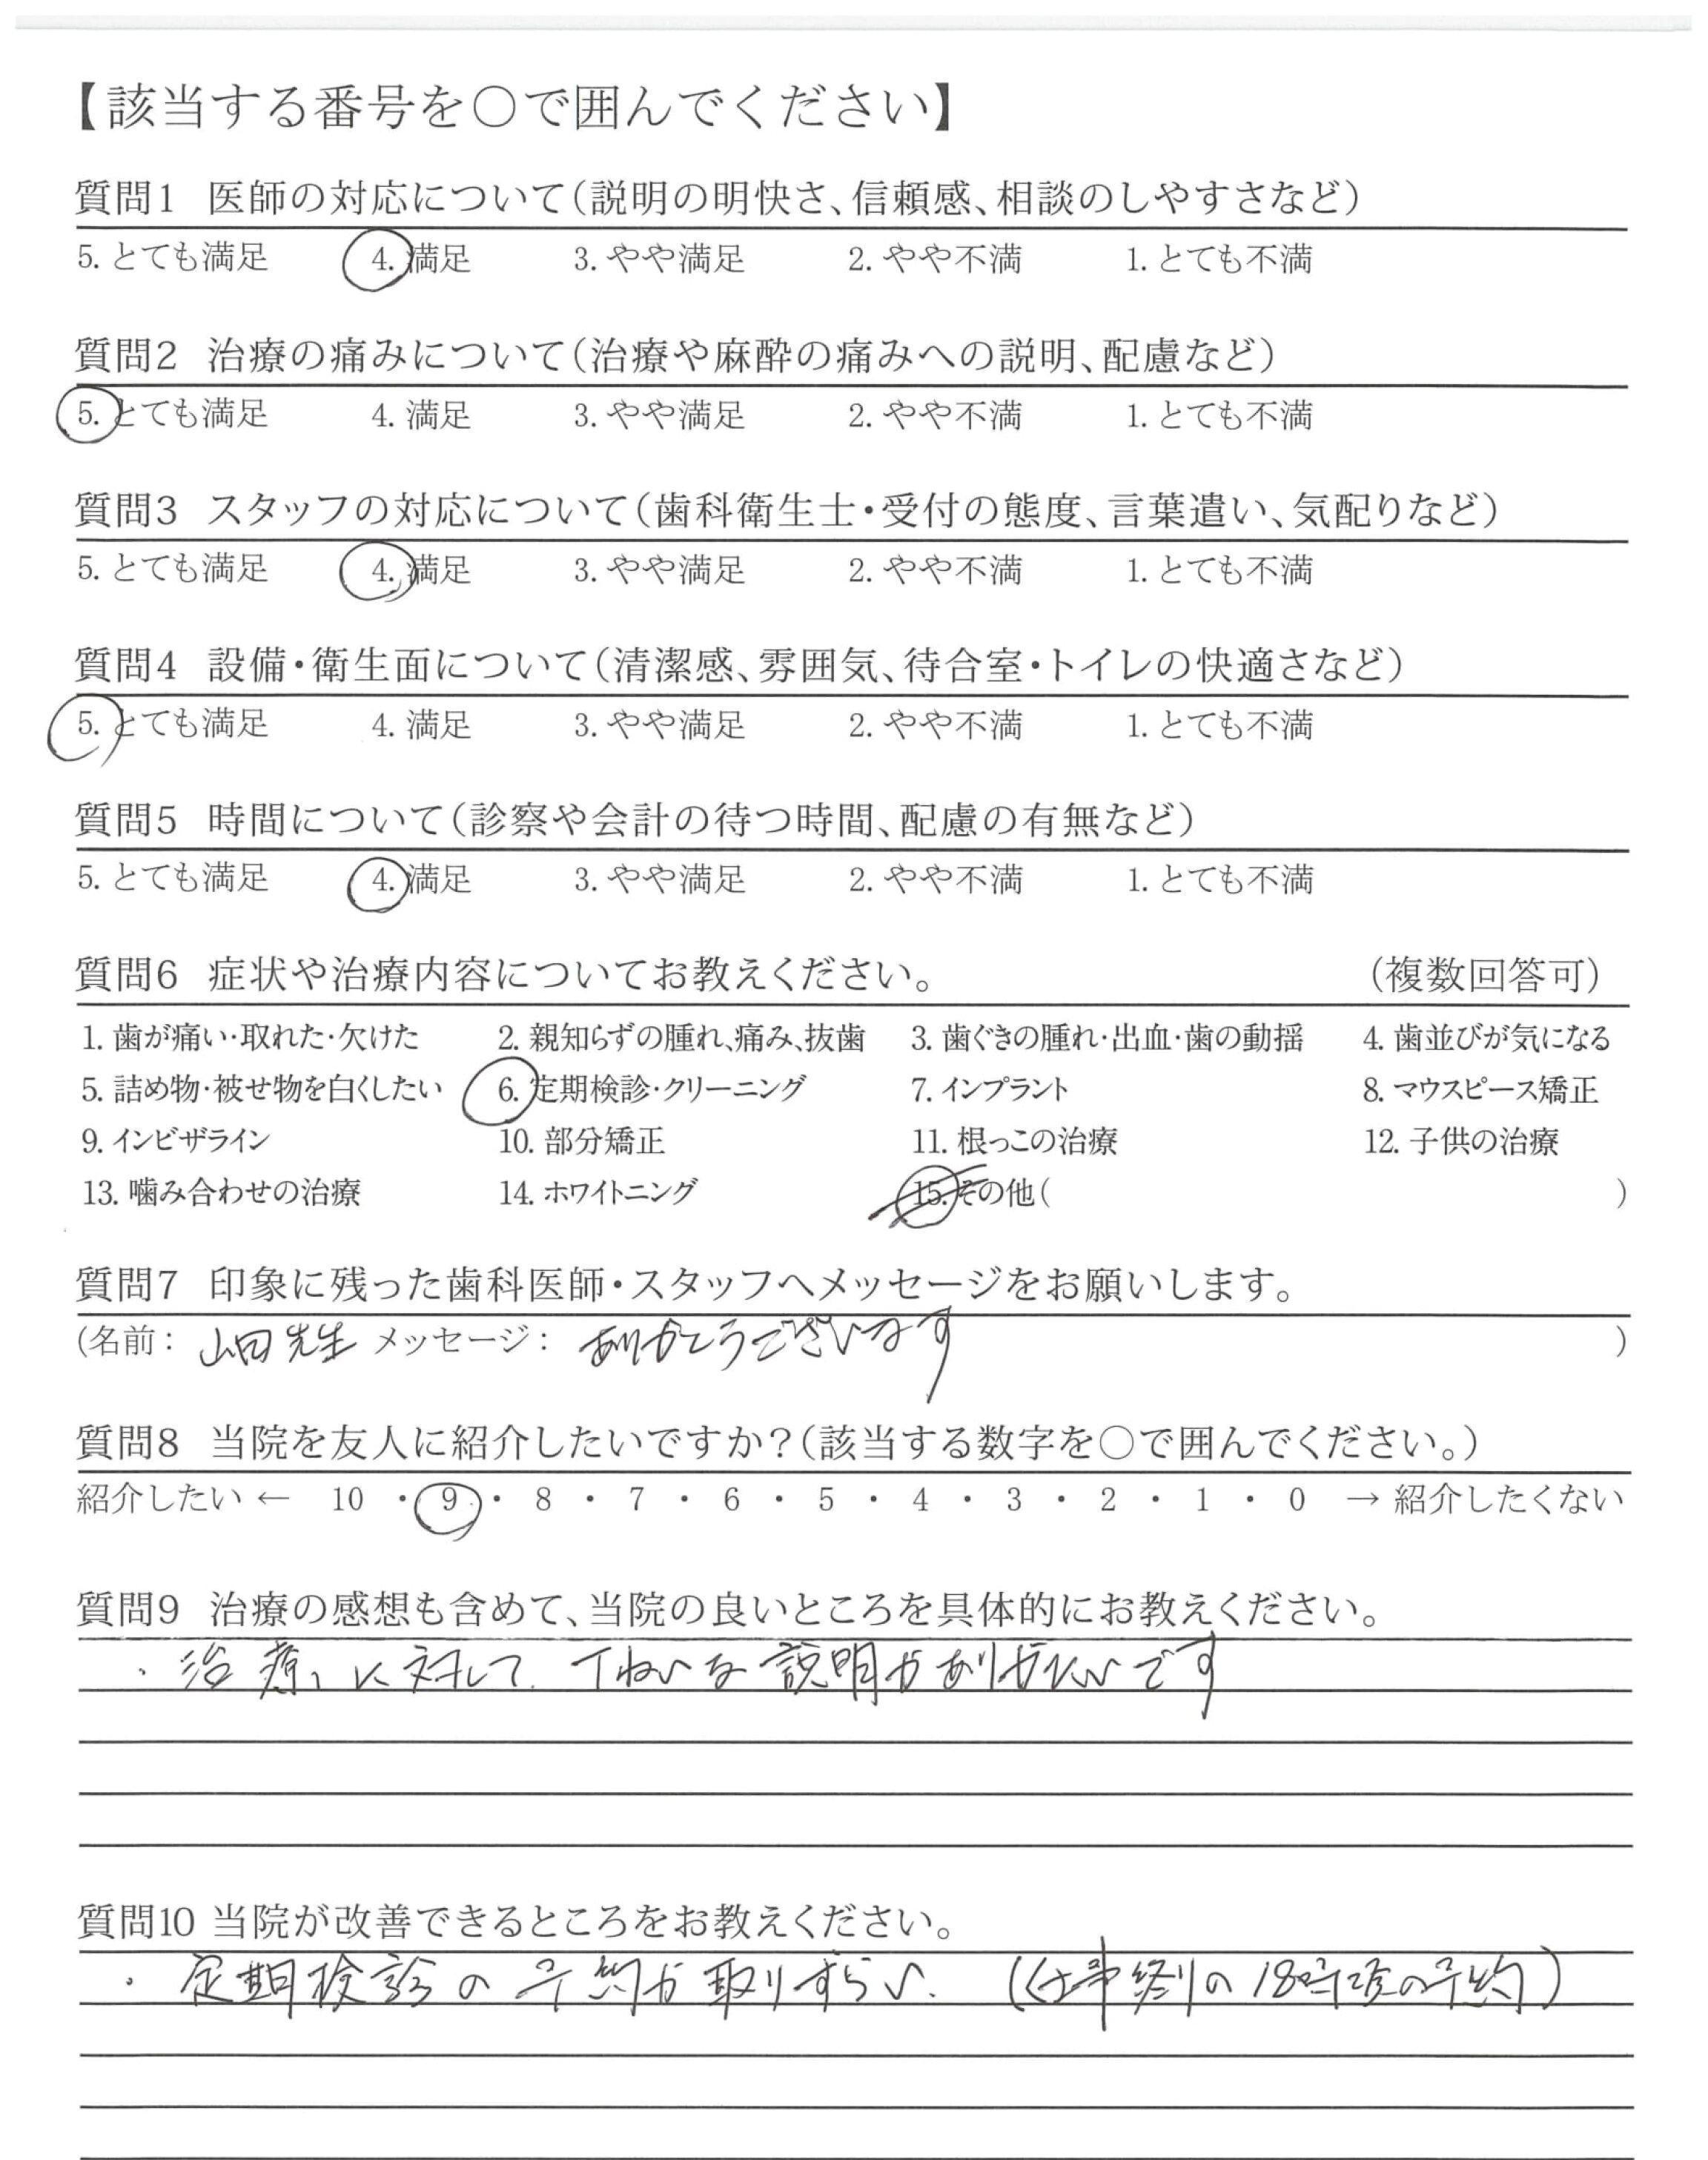 【該当する番号を○で囲んでください】
質問1 医師の対応について(説明の明快さ、信頼感、相談のしやすさなど)
5. とても満足 4. 満足 3. やや満足 2. やや不満 1. とても不満
質問2 治療の痛みについて(治療や麻酔の痛みへの説明、配慮など)
5. とても満足 4. 満足 3. やや満足 2. やや不満 1. とても不満
質問3 スタッフの対応について(歯科衛生士・受付の態度、言葉遣い、気配りなど)
5. とても満足 4. 満足 3. やや満足 2. やや不満 1. とても不満
質問4 設備・衛生面について(清潔感、雰囲気、待合室・トイレの快適さなど)
5. とても満足 4. 満足 3. やや満足 2. やや不満 1. とても不満
質問5 時間について(診察や会計の待つ時間、配慮の有無など)
5. とても満足 4. 満足 3. やや満足 2. やや不満 1. とても不満
質問6 症状や治療内容についてお教えください。 (複数回答可)
1. 歯が痛い・取れた・欠けた 2. 親知らずの腫れ、痛み、抜歯 3. 歯ぐきの腫れ・出血・歯の動揺 4. 歯並びが気になる
5. 詰め物・被せ物を白くしたい 6. 定期検診・クリーニング 7. インプラント 8. マウスピース矯正
9. インビザライン 10. 部分矯正 11. 根っこの治療 12. 子供の治療
13. 噛み合わせの治療 14. ホワイトニング 15. その他( )
質問7 印象に残った歯科医師・スタッフへメッセージをお願いします。
(名前: 山田先生 メッセージ: ありがとうございます )
質問8 当院を友人に紹介したいですか?(該当する数字を○で囲んでください。)
紹介したい ← 10 ・ 9 ・ 8 ・ 7 ・ 6 ・ 5 ・ 4 ・ 3 ・ 2 ・ 1 ・ 0 → 紹介したくない
質問9 治療の感想も含めて、当院の良いところを具体的にお教えください。
・治療に対して、丁ねいな説明がありがたいです
質問10 当院が改善できるところをお教えください。
・定期検診の予約が取りずらい。(仕事終りの18時頃の予約)